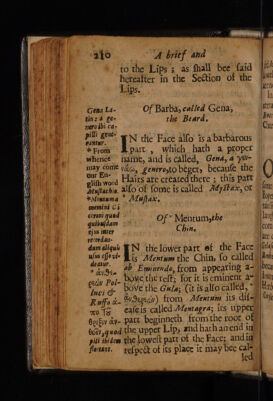 210 A brief and
to the Lips; as shall bee said
hereafter in the Section of the
Lips.
Of Barba, called Gena,
the Beard.
IN the Face also is a barbarous
part, which hath a proper
name, and is called, Gena, a
genero, to beget, because the
Haires are created there; this part
also of some is called Mystax, or
* Mustax.
Of * Mentum, the
Chin.
IN the lower part of the Face
is Mentum the Chin, so called
ab Eminendo, from appearing a-
bove the rest; for it is eminent a-
bove the Gula; (it is also called, *
from Mentum its dis-
ease is called Mentagra; its upper
part beginneth from the root of
the upper Lip, and hath an end in
the lowest part of the Face; and in
respect of its place it may bee cal-
led
Gena La-
tinè a ge-
nero ibi ca-
pilli gene-
rantur.
* From
whence
may come
our En-
glish word
Mustachio.
* Mentum a
memini